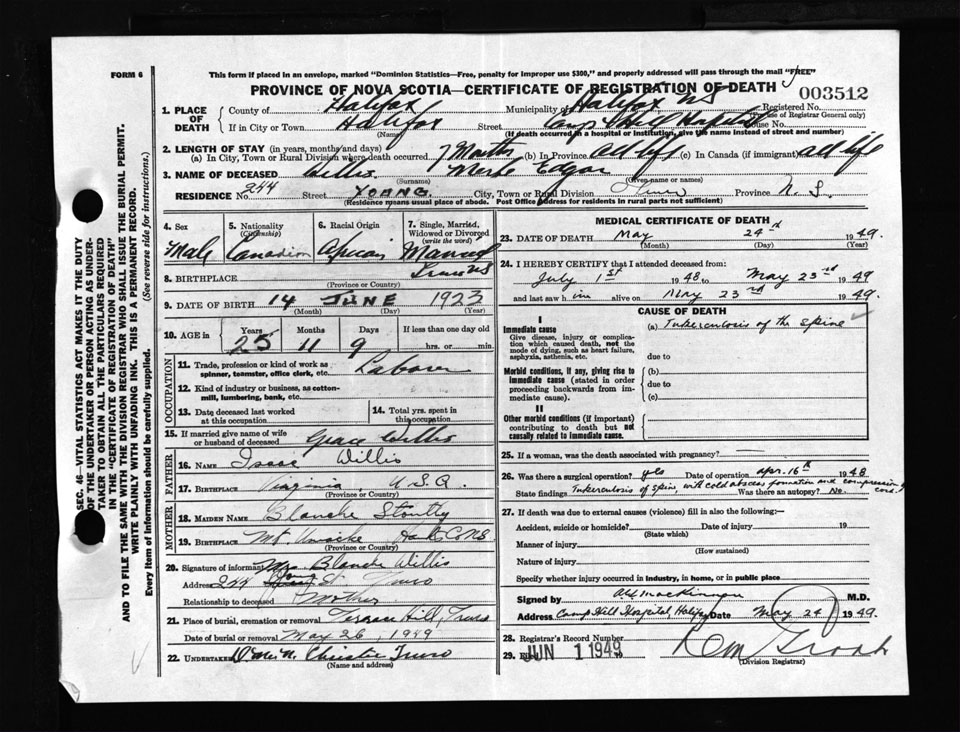 FORM 6
This form if placed in an envelope, marked "Dominion Statistics—Free, penalty for improper use $300," and properly addressed will pass through the mail "FREE"
PROVINCE OF NOVA SCOTIA—CERTIFICATE OF REGISTRATION OF DEATH
003512
1. PLACE OF DEATH
County of Halifax Municipality of Halifax NS Registered No.
(For use of Registrar General only)
If in City or Town Halifax Street Camp Hill Hospital House No.
(Name) (If death occurred in a hospital or institution, give the name instead of street and number)
2. LENGTH OF STAY (in years, months and days)
(a) In City, Town or Rural Division where death occurred 7 Months (b) In Province All life (c) In Canada (if immigrant) all life
3. NAME OF DECEASED Willis Merle Edgar
(Surname) (Given name or names)
RESIDENCE No. 244 Street YOUNG City, Town or Rural Division Truro Province N.S.
(Residence means usual place of abode. Post Office Address for residents in rural parts not sufficient)
4. Sex Male
5. Nationality (Citizenship) Canadian
6. Racial Origin African
7. Single, Married, Widowed or Divorced (write the word) Married
8. BIRTHPLACE Truro NS
(Province or Country)
9. DATE OF BIRTH 14 JUNE 1923
(Month) (Day) (Year)
10. AGE in Years 25 Months 11 Days 9 If less than one day old hrs. or min.
OCCUPATION
11. Trade, profession or kind of work as spinner, teamster, office clerk, etc. Laborer
12. Kind of industry or business, as cotton-mill, lumbering, bank, etc.
13. Date deceased last worked at this occupation
14. Total yrs. spent in this occupation
15. If married give name of wife or husband of deceased Grace Willis
FATHER
16. NAME Isaac Willis
17. BIRTHPLACE Virginia, U.S.A.
(Province or Country)
MOTHER
18. MAIDEN NAME Blanche
19. BIRTHPLACE Mt. Uniacke Co NS
(Province or Country)
20. Signature of informant Mrs. Blanche Willis
Address 244 Young St. Truro
Relationship to deceased Mother
21. Place of burial, cremation or removal Terrace Hill, Truro
Date of burial or removal May 26, 1949
22. UNDERTAKER Christie Truro
(Name and address)
MEDICAL CERTIFICATE OF DEATH
23. DATE OF DEATH May 24th 1949.
(Month) (Day) (Year)
24. I HEREBY CERTIFY that I attended deceased from:
July 1st 1948 to May 23rd 1949
and last saw him alive on May 23rd 1949.
CAUSE OF DEATH
I
Immediate cause
Give disease, injury or complication which caused death, not the mode of dying, such as heart failure, asphyxia, asthenia, etc.
(a) Tuberculosis of the spine
due to
Morbid conditions, if any, giving rise to immediate cause (stated in order proceeding backwards from immediate cause).
(b)
due to
(c)
II
Other morbid conditions (if important) contributing to death but not causally related to immediate cause.
25. If a woman, was the death associated with pregnancy? —
26. Was there a surgical operation? yes Date of operation Apr. 16th 1948
State findings Tuberculosis of Spine, with cold abscess formation and compression of cord. Was there an autopsy? No.
27. If death was due to external causes (violence) fill in also the following:—
Accident, suicide or homicide? Date of injury 19
(State which)
Manner of injury
(How sustained)
Nature of injury
Specify whether injury occurred in industry, in home, or in public place
Signed by MacKinnon M.D.
Address Camp Hill Hospital, Halifax Date May 24 1949.
28. Registrar's Record Number
29. JUN 1 1949 19
(Division Registrar)
SEC. 46—VITAL STATISTICS ACT MAKES IT THE DUTY
OF THE UNDERTAKER OR PERSON ACTING AS UNDER-
TAKER TO OBTAIN ALL THE PARTICULARS REQUIRED
IN THE "CERTIFICATE OF REGISTRATION OF DEATH"
AND TO FILE THE SAME WITH THE DIVISION REGISTRAR WHO SHALL ISSUE THE BURIAL PERMIT.
WRITE PLAINLY WITH UNFADING INK. THIS IS A PERMANENT RECORD.
Every item of information should be carefully supplied. (See reverse side for instructions.)